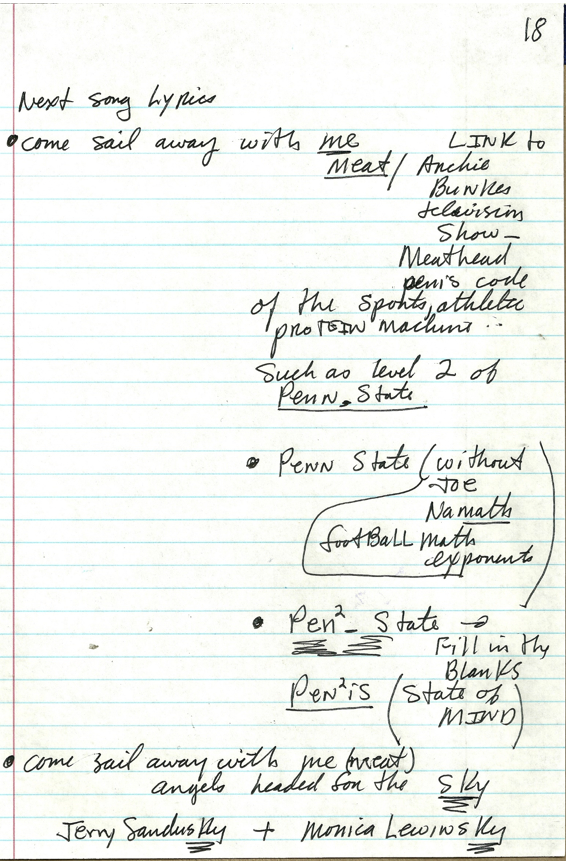 18
Next song Lyrics
• come sail away with me LINK to
Meat / Archie
Bunkes
television
Show –
Meathead
penis code
of the sports, athletic
proTEIN machine ...
Such as level 2 of
Penn State
• Penn State (without
JOE
Namath
footBALL math
exponents)
• Pen² – State →
Fill in the
Blanks
Pen²is (State of
MIND)
• come sail away with me (meat)
angels headed for the sky
Jerry Sandusky + Monica Lewinsky